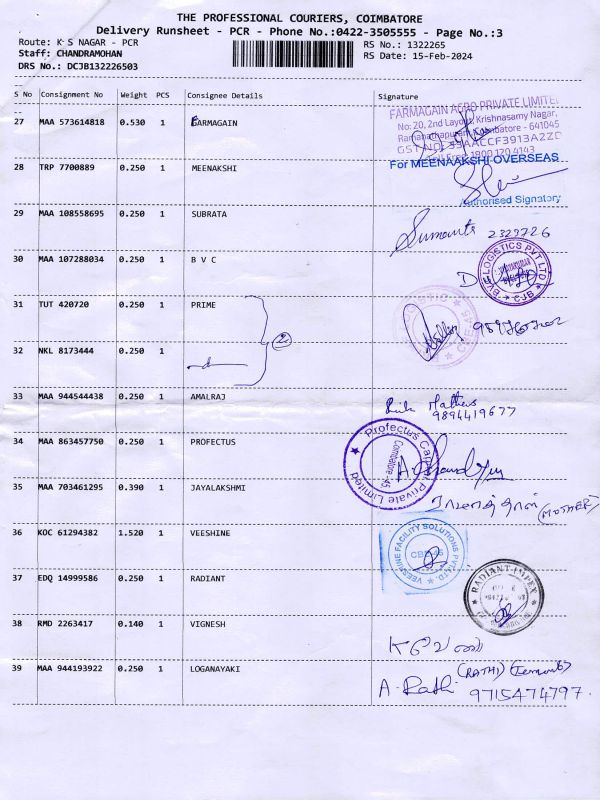 THE PROFESSIONAL COURIERS, COIMBATORE
Delivery Runsheet - PCR - Phone No.:0422-3505555 - Page No.:3
Route: K S NAGAR - PCR
RS No.: 1322265
Staff: CHANDRAMOHAN
RS Date: 15-Feb-2024
DRS No.: DCJB132226503
S No Consignment No Weight PCS Consignee Details Signature
27 MAA 573614818 0.530 1 FARMAGAIN
FARMAGAIN AGRO PRIVATE LIMITED
No: 20, 2nd Layout, Krishnasamy Nagar,
Ramanathapuram, Coimbatore - 641045
GST NO: 33AACCF3913A2ZD
Toll Free: 1800 120 4143
28 TRP 7700889 0.250 1 MEENAKSHI
For MEENAAKSHI OVERSEAS
Authorised Signatory
29 MAA 108558695 0.250 1 SUBRATA
30 MAA 107288034 0.250 1 B V C
BVC LOGISTICS PVT LTD
31 TUT 420720 0.250 1 PRIME
2
32 NKL 8173444 0.250 1
33 MAA 944544438 0.250 1 AMALRAJ
9894419677
34 MAA 863457750 0.250 1 PROFECTUS
Profectus Capital Private Limited
Coimbatore - 45
35 MAA 703461295 0.390 1 JAYALAKSHMI
(MOTHER)
36 KOC 61294382 1.520 1 VEESHINE
VEESHINE FACILITY SOLUTIONS PVT.LTD.
CBE-45
37 EDQ 14999586 0.250 1 RADIANT
RADIANT IMPEX
38 RMD 2263417 0.140 1 VIGNESH
39 MAA 944193922 0.250 1 LOGANAYAKI
(RATHI)
A. Rathi 9715474797.